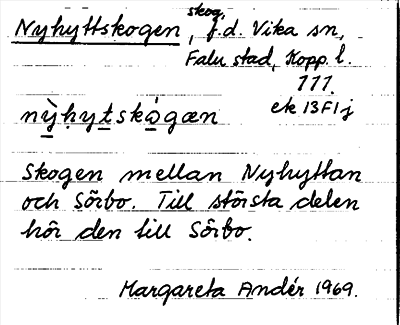 Nyhyttskogen, skog, f.d. Vika sn,
Falu stad, Kopp. l.
111.
ek 13F1j
nỳḥyṯskógæn
Skogen mellan Nyhyttan
och Sörbo. Till största delen
hör den till Sörbo.
Margareta Andér 1969.